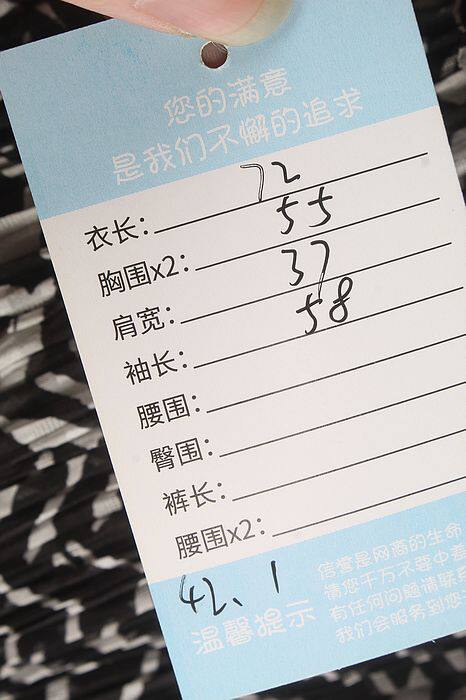 您的满意
是我们不懈的追求
衣长: 72
胸围x2: 55
肩宽: 37
袖长: 58
腰围:
臀围:
裤长:
腰围x2:
42、1
温馨提示
信誉是网商的生命
请您千万不要中差
有任何问题请联系
我们会服务到您